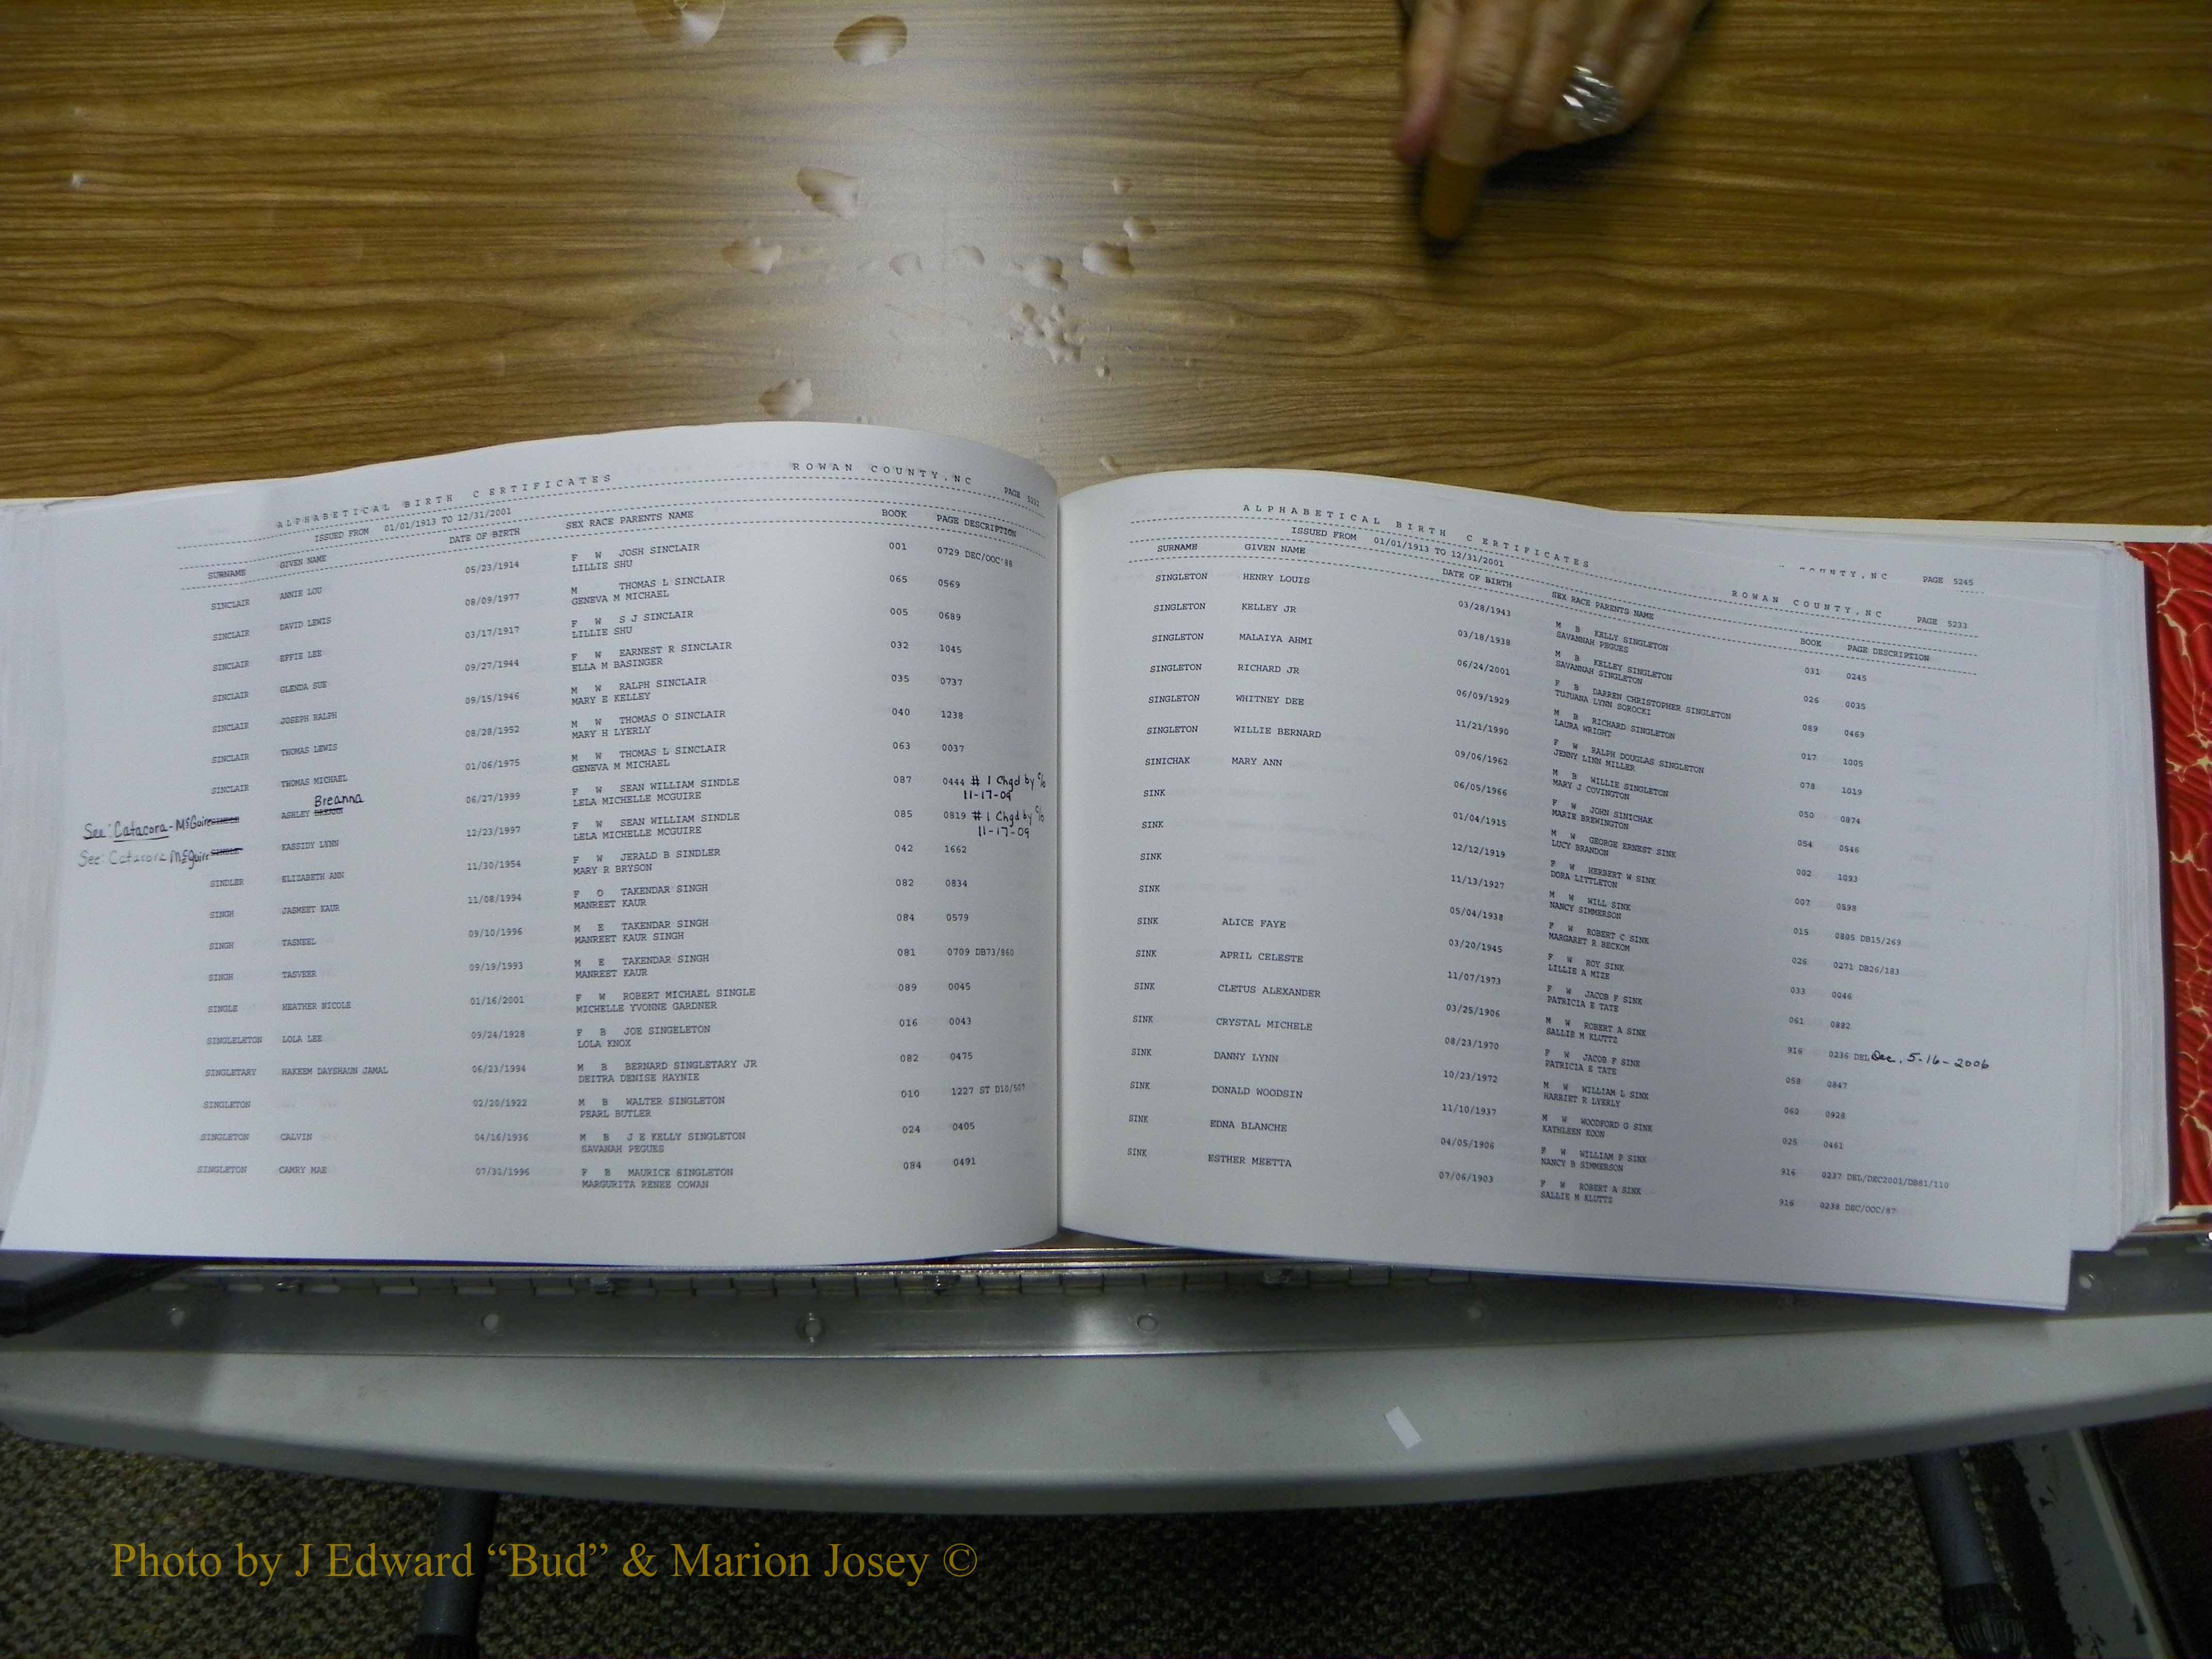 ALPHABETICAL BIRTH CERTIFICATES ROWAN COUNTY,NC PAGE
ISSUED FROM 01/01/1913 TO 12/31/2001
SURNAME GIVEN NAME DATE OF BIRTH SEX RACE PARENTS NAME BOOK PAGE DESCRIPTION
SINCLAIR ANNIE LOU 05/23/1914 F W JOSH SINCLAIR 001 0729 DEC/OOC'88
LILLIE SHU
SINCLAIR DAVID LEWIS 08/09/1977 M THOMAS L SINCLAIR 065 0569
GENEVA M MICHAEL
SINCLAIR EFFIE LEE 03/17/1917 F W S J SINCLAIR 005 0689
LILLIE SHU
SINCLAIR GLENDA SUE 09/27/1944 F W EARNEST R SINCLAIR 032 1045
ELLA M BASINGER
SINCLAIR JOSEPH RALPH 09/15/1946 M W RALPH SINCLAIR 035 0737
MARY E KELLEY
SINCLAIR THOMAS LEWIS 08/28/1952 M W THOMAS O SINCLAIR 040 1238
MARY H LYERLY
SINCLAIR THOMAS MICHAEL 01/06/1975 M W THOMAS L SINCLAIR 063 0037
GENEVA M MICHAEL
Breanna
See: Catacora-McGuire ASHLEY 06/27/1999 F W SEAN WILLIAM SINDLE 087 0444 # 1 Chgd by c/o
LELA MICHELLE MCGUIRE 11-17-09
See: Catacora McGuire SINDLE KASSIDY LYNN 12/23/1997 F W SEAN WILLIAM SINDLE 085 0819 # 1 Chgd by c/o
LELA MICHELLE MCGUIRE 11-17-09
SINDLER ELIZABETH ANN 11/30/1954 F W JERALD B SINDLER 042 1662
MARY R BRYSON
SINGH JASMEET KAUR 11/08/1994 F O TAKENDAR SINGH 082 0834
MANREET KAUR
SINGH TASNEEL 09/10/1996 M E TAKENDAR SINGH 084 0579
MANREET KAUR SINGH
SINGH TASVEER 09/19/1993 M E TAKENDAR SINGH 081 0709 DB73/860
MANREET KAUR
SINGLE HEATHER NICOLE 01/16/2001 F W ROBERT MICHAEL SINGLE 089 0045
MICHELLE YVONNE GARDNER
SINGLELETON LOLA LEE 09/24/1928 F B JOE SINGELETON 016 0043
LOLA KNOX
SINGLETARY HAKEEM DAYSHAUN JAMAL 06/23/1994 M B BERNARD SINGLETARY JR 082 0475
DEITRA DENISE HAYNIE
SINGLETON 02/20/1922 M B WALTER SINGLETON 010 1227 ST D10/507
PEARL BUTLER
SINGLETON CALVIN 04/16/1936 M B J E KELLY SINGLETON 024 0405
SAVANAH PEGUES
SINGLETON CAMRY MAE 07/31/1996 F B MAURICE SINGLETON 084 0491
MARGURITA RENEE COWAN
COUNTY,NC PAGE 5245
ALPHABETICAL BIRTH CERTIFICATES ROWAN COUNTY,NC PAGE 5233
ISSUED FROM 01/01/1913 TO 12/31/2001
SURNAME GIVEN NAME DATE OF BIRTH SEX RACE PARENTS NAME BOOK PAGE DESCRIPTION
SINGLETON HENRY LOUIS 03/28/1943 M B KELLY SINGLETON 031 0245
SAVANNAH PEGUES
SINGLETON KELLEY JR 03/18/1938 M B KELLEY SINGLETON 026 0035
SAVANNAH SINGLETON
SINGLETON MALAIYA AHMI 06/24/2001 F B DARREN CHRISTOPHER SINGLETON 089 0469
TUJUANA LYNN SOROCKI
SINGLETON RICHARD JR 06/09/1929 M B RICHARD SINGLETON 017 1005
LAURA WRIGHT
SINGLETON WHITNEY DEE 11/21/1990 F W RALPH DOUGLAS SINGLETON 078 1019
JENNY LINN MILLER
SINGLETON WILLIE BERNARD 09/06/1962 M B WILLIE SINGLETON 050 0874
MARY J COVINGTON
SINICHAK MARY ANN 06/05/1966 F W JOHN SINICHAK 054 0546
MARIE BREWINGTON
SINK 01/04/1915 M W GEORGE ERNEST SINK 002 1093
LUCY BRANDON
SINK 12/12/1919 F W HERBERT W SINK 007 0598
DORA LITTLETON
SINK 11/13/1927 M W WILL SINK 015 0805 DB15/269
NANCY SIMMERSON
SINK 05/04/1938 F W ROBERT C SINK 026 0271 DB26/183
MARGARET R BECKOM
SINK ALICE FAYE 03/20/1945 F W ROY SINK 033 0046
LILLIE A MIZE
SINK APRIL CELESTE 11/07/1973 F W JACOB F SINK 061 0882
PATRICIA E TATE
SINK CLETUS ALEXANDER 03/25/1906 M W ROBERT A SINK 916 0236 DEL Dec. 5-16-2006
SALLIE M KLUTTZ
SINK CRYSTAL MICHELE 08/23/1970 F W JACOB F SINK 058 0847
PATRICIA E TATE
SINK DANNY LYNN 10/23/1972 M W WILLIAM L SINK 060 0928
HARRIET R LYERLY
SINK DONALD WOODSIN 11/10/1937 M W WOODFORD G SINK 025 0461
KATHLEEN KOON
SINK EDNA BLANCHE 04/05/1906 F W WILLIAM P SINK 916 0237 DEL/DEC2001/DB81/110
NANCY B SIMMERSON
SINK ESTHER MEETTA 07/06/1903 F W ROBERT A SINK 916 0238 DEC/OOC/87
SALLIE M KLUTTZ
Photo by J Edward “Bud” & Marion Josey ©